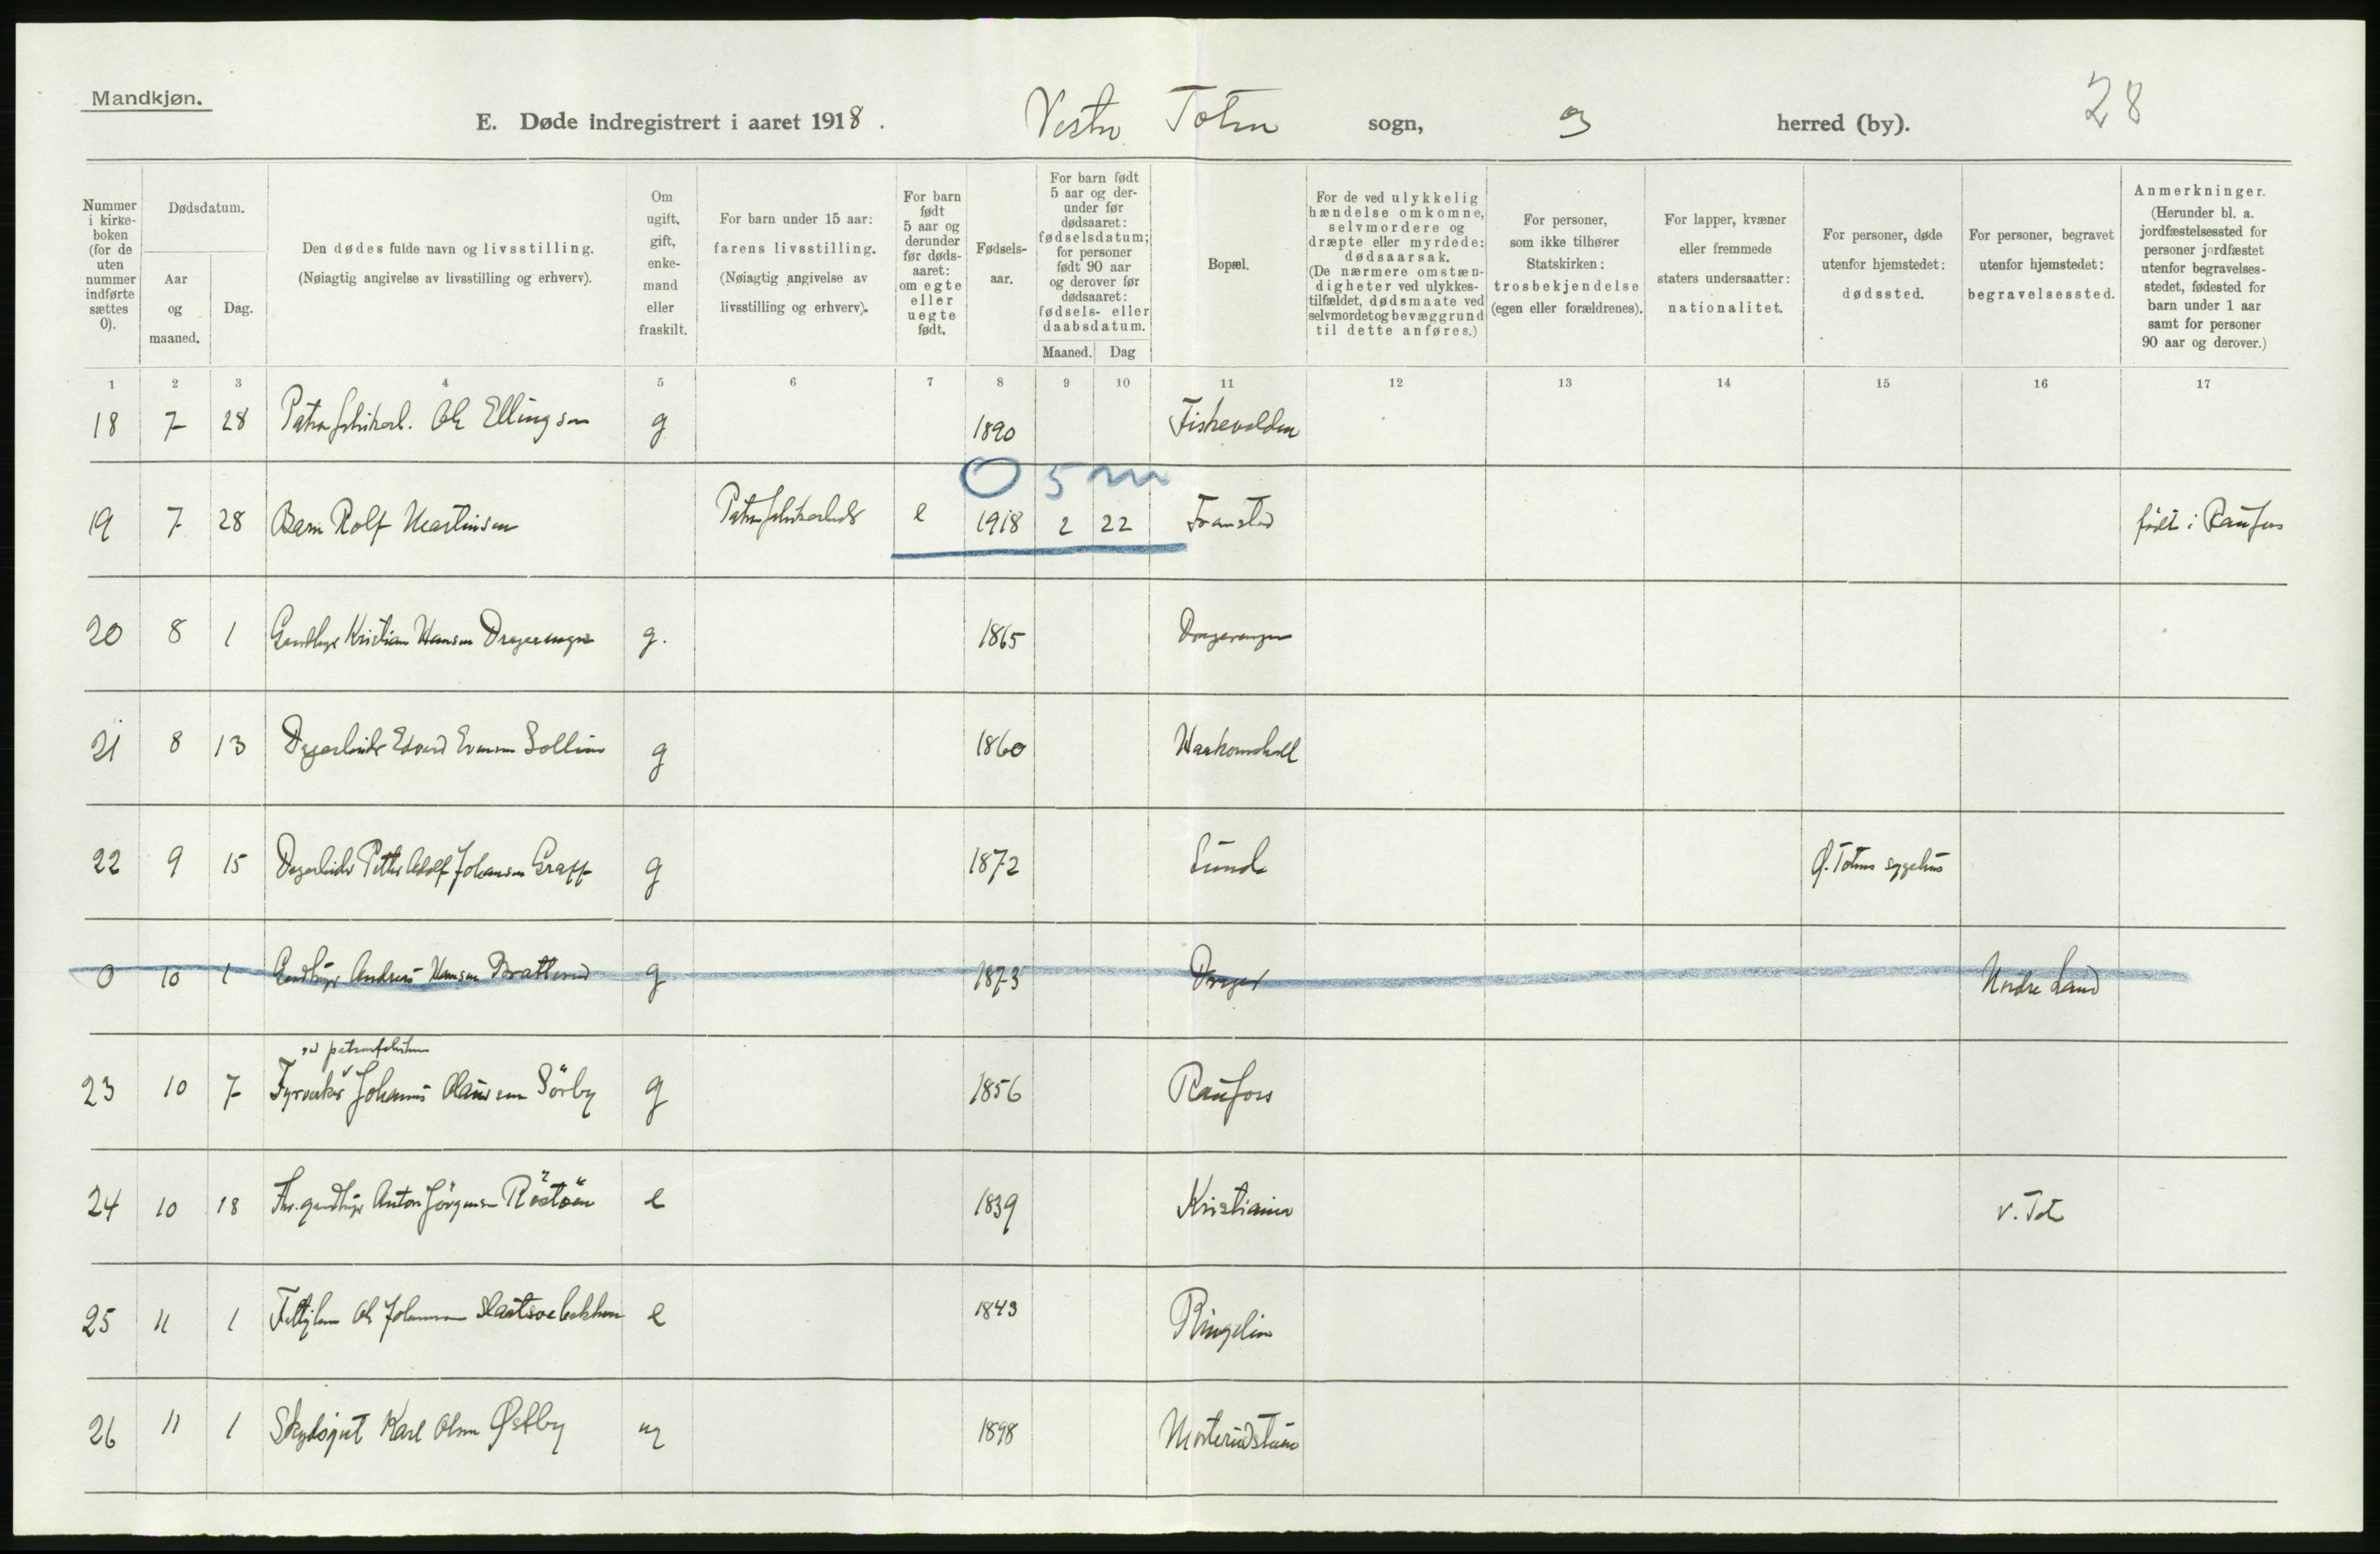 Mandkjøn.
E. Døde indregistrert i aaret 1918. Vestre Toten sogn, og herred (by). 28
Nummer i kirkeboken (for de uten nummer indførte sættes 0).
Dødsdatum.
Aar og maaned.
Dag.
Den dødes fulde navn og livsstilling. (Nøiagtig angivelse av livsstilling og erhverv).
Om ugift, gift, enkemand eller fraskilt.
For barn under 15 aar: farens livsstilling. (Nøiagtig angivelse av livsstilling og erhverv).
For barn født 5 aar og derunder før dødsaaret: om egte eller uegte født.
Fødselsaar.
For barn født 5 aar og derunder før dødsaaret: fødselsdatum; for personer født 90 aar og derover før dødsaaret: fødsels- eller daabsdatum.
Maaned. Dag
Bopæl.
For de ved ulykkelig hændelse omkomne, selvmordere og dræpte eller myrdede: dødsaarsak. (De nærmere omstændigheter ved ulykkestilfældet, dødsmaate ved selvmordet og bevæggrund til dette anføres.)
For personer, som ikke tilhører Statskirken: trosbekjendelse (egen eller forældrenes).
For lapper, kvæner eller fremmede staters undersaatter: nationalitet.
For personer, døde utenfor hjemstedet: dødssted.
For personer, begravet utenfor hjemstedet: begravelsessted.
Anmerkninger. (Herunder bl. a. jordfæstelsessted for personer jordfæstet utenfor begravelsesstedet, fødested for barn under 1 aar samt for personer 90 aar og derover.)
1 2 3 4 5 6 7 8 9 10 11 12 13 14 15 16 17
18 7 28 Ole Ellingsen g 1890 Fiskevolden
0 5 m
19 7 28 Barn Rolf Martinsen e 1918 2 22 Framstad født i Raufoss
20 8 1 Kristian Hansen g. 1865
21 8 13 Edvard Evensen Sollien g 1860
22 9 15 Petter Adolf Johansen Graff g 1872 Lund Ø. Totens sygehus
0 10 1 Andreas Hansen Bratterud g 1873 Nordre Land
23 10 7 Fyrverker Johannes Olaussen Sörby g 1856 Raufoss
24 10 18 Anton Jörgensen e 1839 Kristiania V. Tot
25 11 1 Ole Johannesen e 1843 Ringelien
26 11 1 Skydsgut Karl Olsen Østby ug 1898